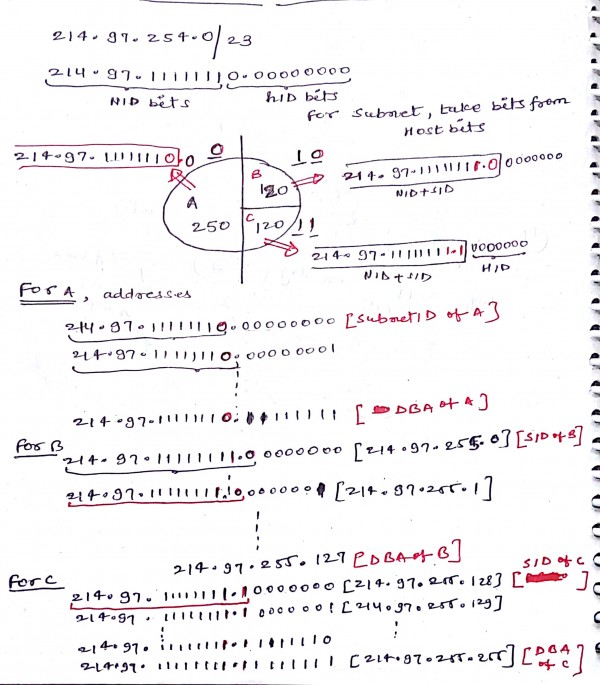 214.97.254.0/23
214.97.11111110.00000000
NID bits
HID bits
For Subnet, take bits from
Host bits
214.97.11111110.0
0
10
B
120
214.97.11111111.0 0000000
NID+SID
A
250
C
120
11
214.97.11111111.1 0000000
NID+SID
HID
For A, addresses
214.97.11111110.00000000 [Subnet ID of A]
214.97.11111110.00000001
214.97.11111110.11111111 [DBA of A]
For B
214.97.11111111.0 0000000 [214.97.255.0] [SID of B]
214.97.11111111.00000001 [214.97.255.1]
214.97.255.127 [DBA of B]
For C
214.97.11111111.10000000 [214.97.255.128] [SID of C]
214.97.11111111.10000001 [214.97.255.129]
214.97.11111111.11111110
214.97.11111111.11111111 [214.97.255.255] [DBA of C]